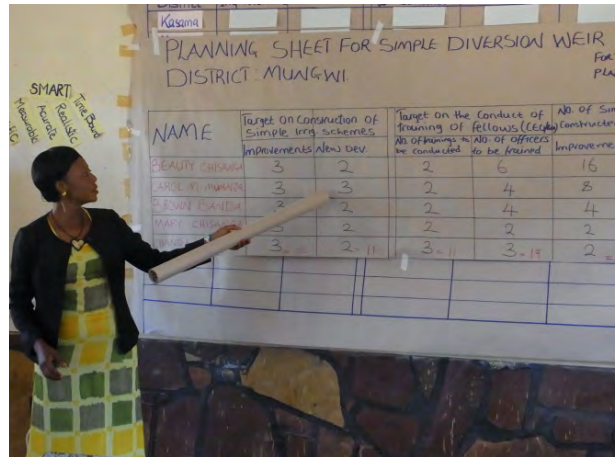 Kasama
PLANNING SHEET FOR SIMPLE DIVERSION WEIR
DISTRICT: MUNGWI
FOR
SMART
Time Bound
Realistic
Acurate
Measurable
NAME
Target On Construction of Simple Irrig. schemes
Target on the Conduct of Training Of fellows
No. of Sim
Constructe
Improvements
New Dev.
No. of trainings to be conducted
No. of officers to be trained
Improveme
BEAUTY CHISANGA 3 2 2 6 16
CAROL M. 3 2 4 8
BROWN BANDA 3 2 2 4 4
MARY 2 2 2 2
3 2 = 11 3 = 11 3 = 19 2 =